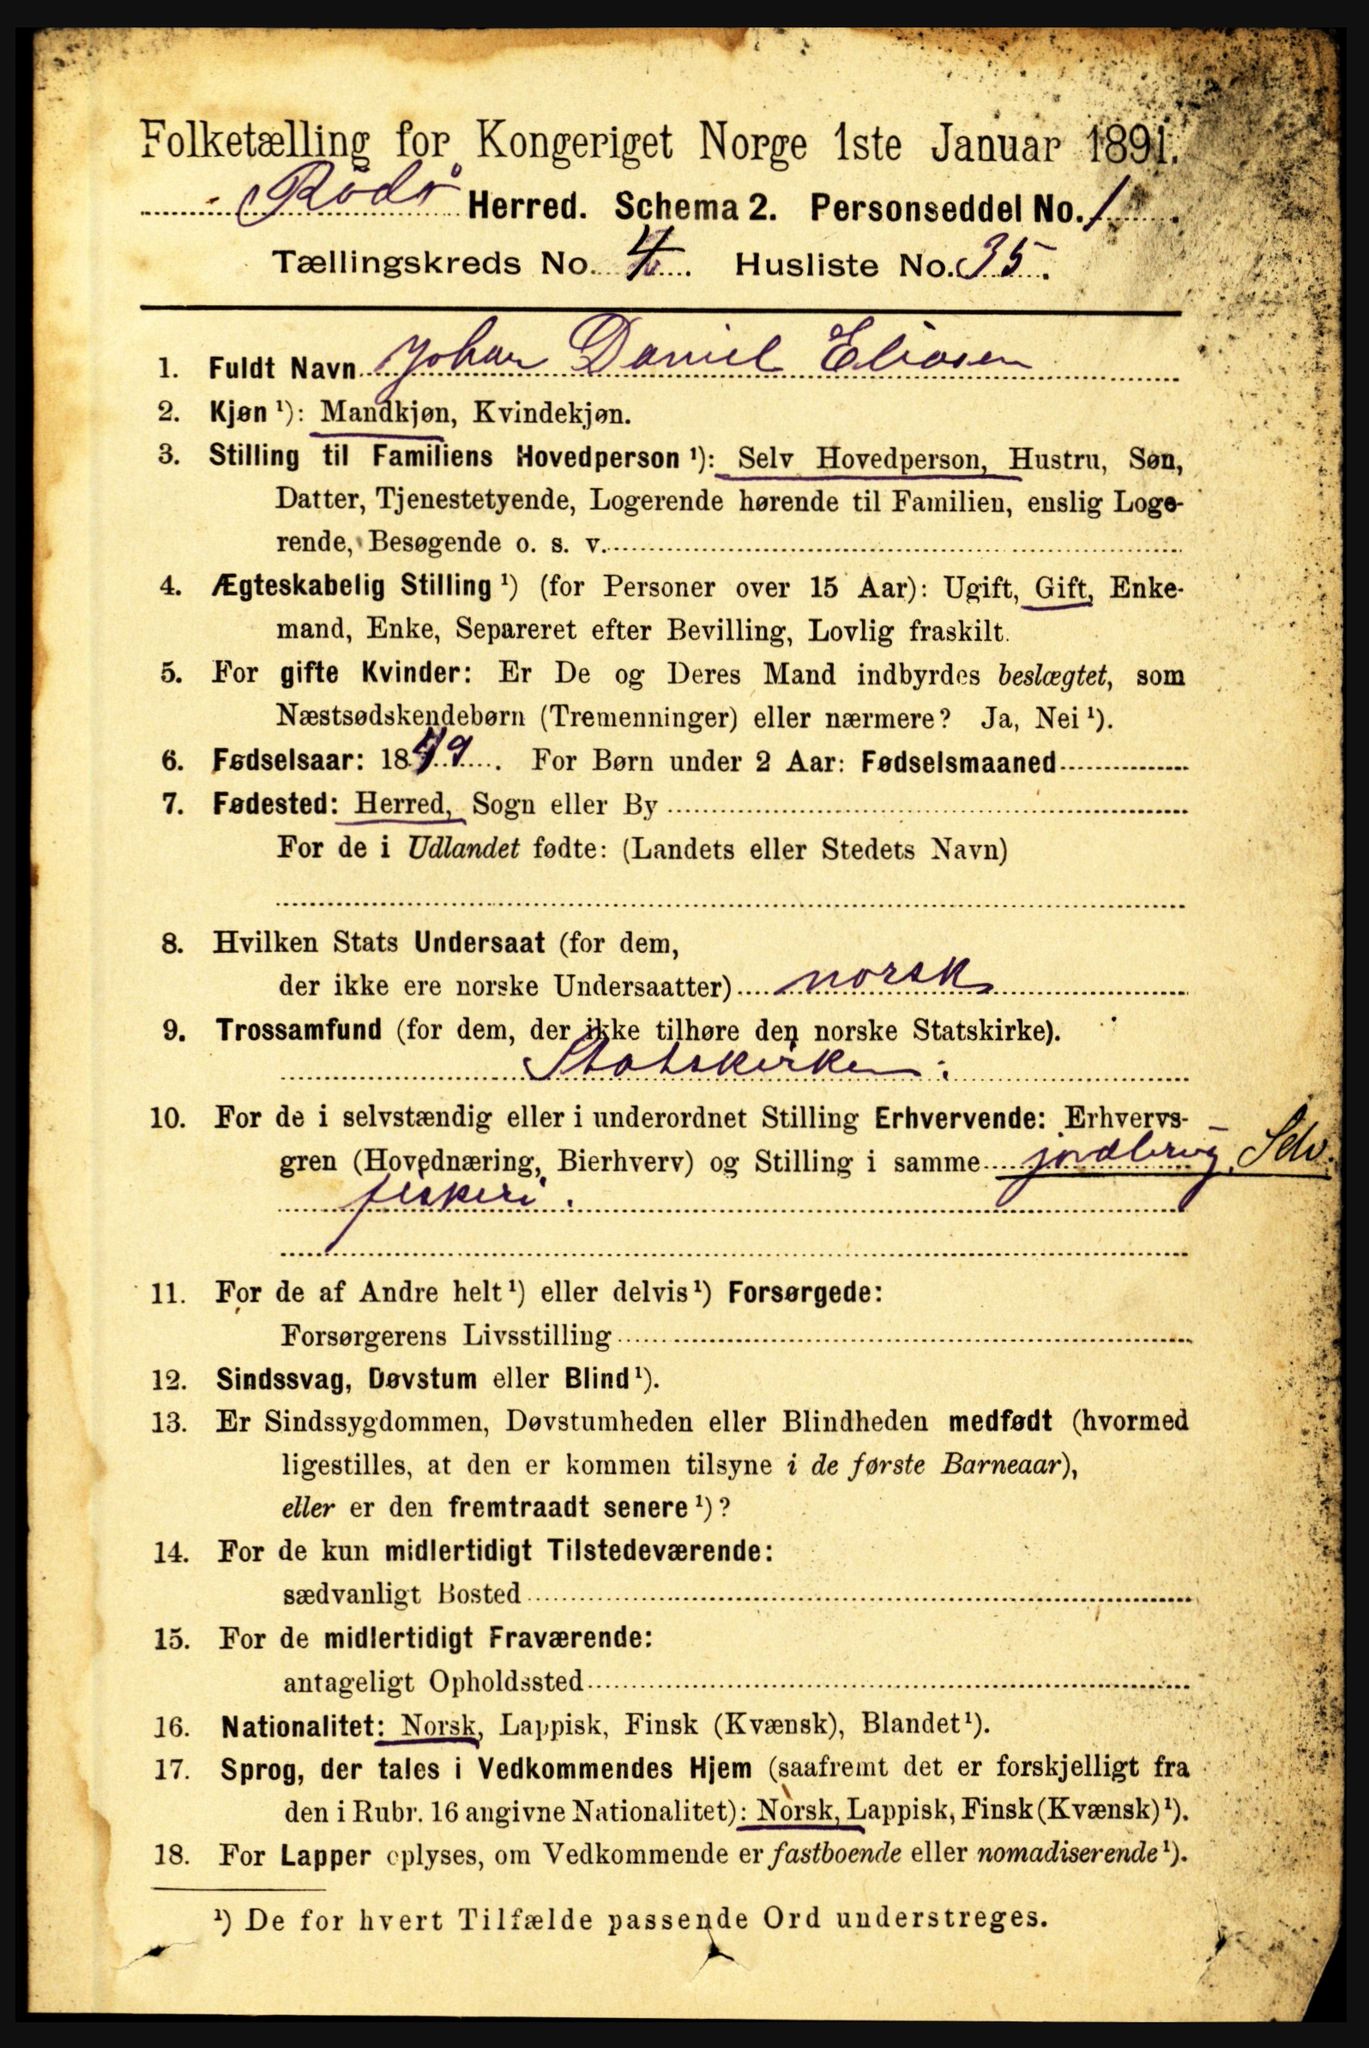 Folketælling for Kongeriget Norge 1ste Januar 1891.
Rödö Herred. Schema 2. Personseddel No. 1.
Tællingskreds No. 4. Husliste No. 35.
1. Fuldt Navn Johan Daniel Eliasen
2. Kjøn ¹): Mandkjøn, Kvindekjøn.
3. Stilling til Familiens Hovedperson ¹): Selv Hovedperson, Hustru, Søn,
Datter, Tjenestetyende, Logerende hørende til Familien, enslig Loge-
rende, Besøgende o. s. v.
4. Ægteskabelig Stilling ¹) (for Personer over 15 Aar): Ugift, Gift, Enke-
mand, Enke, Separeret efter Bevilling, Lovlig fraskilt.
5. For gifte Kvinder: Er De og Deres Mand indbyrdes beslægtet, som
Næstsødskendebørn (Tremenninger) eller nærmere? Ja, Nei ¹).
6. Fødselsaar: 1849. For Børn under 2 Aar: Fødselsmaaned
7. Fødested: Herred, Sogn eller By
For de i Udlandet fødte: (Landets eller Stedets Navn)
8. Hvilken Stats Undersaat (for dem,
der ikke ere norske Undersaatter) norsk
9. Trossamfund (for dem, der ikke tilhøre den norske Statskirke).
Statskirken.
10. For de i selvstændig eller i underordnet Stilling Erhvervende: Erhvervs-
gren (Hovednæring, Bierhverv) og Stilling i samme jordbrug, Selv.
fiskeri.
11. For de af Andre helt ¹) eller delvis ¹) Forsørgede:
Forsørgerens Livsstilling
12. Sindssvag, Døvstum eller Blind ¹).
13. Er Sindssygdommen, Døvstumheden eller Blindheden medfødt (hvormed
ligestilles, at den er kommen tilsyne i de første Barneaar),
eller er den fremtraadt senere ¹)?
14. For de kun midlertidigt Tilstedeværende:
sædvanligt Bosted
15. For de midlertidigt Fraværende:
antageligt Opholdssted
16. Nationalitet: Norsk, Lappisk, Finsk (Kvænsk), Blandet ¹).
17. Sprog, der tales i Vedkommendes Hjem (saafremt det er forskjelligt fra
den i Rubr. 16 angivne Nationalitet): Norsk, Lappisk, Finsk (Kvænsk) ¹).
18. For Lapper oplyses, om Vedkommende er fastboende eller nomadiserende ¹).
¹) De for hvert Tilfælde passende Ord understreges.